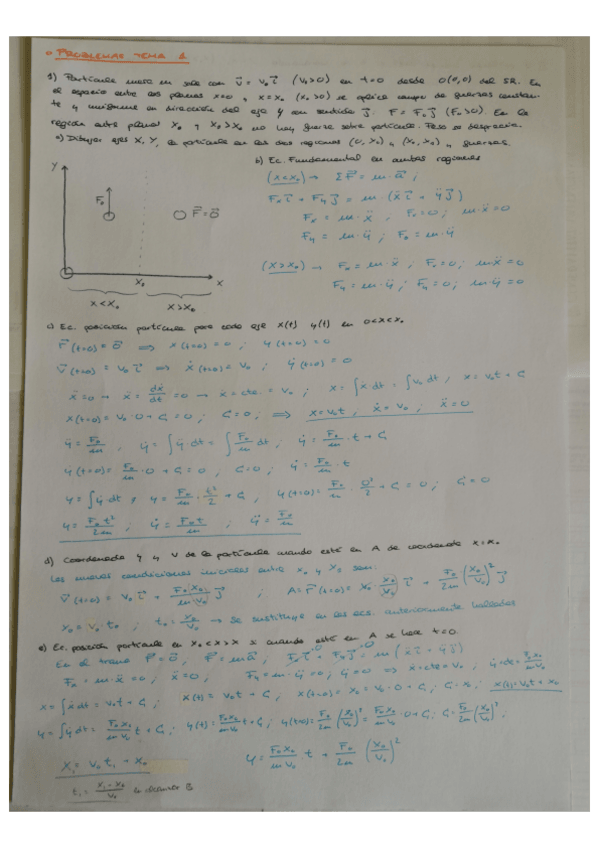 • PROBLEMAS TEMA 1
1) Partícula masa m sale con v⃗ = v₀ i⃗ (v₀>0) en t=0 desde O(0,0) del SR. En
el espacio entre los planos x=0 y x=x₀ (x₀>0) se aplica campo de fuerzas constan-
te y uniforme en dirección del eje Y con sentido j⃗: F⃗ = F₀ j⃗ (F₀>0). En la
región entre planos x₀ y no hay fuerza sobre partícula. Peso se desprecia.
a) Dibujar ejes X, Y, la partícula en las dos regiones (0, x₀) y fuerzas.
b) Ec. Fundamental en ambas regiones
Y
F₀
F⃗ = 0⃗
x₀
x
x < x₀
x > x₀
(x<x₀) → ΣF⃗ = m·a⃗ ;
Fₓ i⃗ + Fy j⃗ = m·(ẍ i⃗ + ÿ j⃗)
Fₓ = m·ẍ ; Fₓ=0 ; m·ẍ=0
Fy = m·ÿ ; F₀ = m·ÿ
(x>x₀) → Fₓ = m·ẍ ; Fₓ=0 ; m·ẍ=0
Fy = m·ÿ ; Fy=0 ; m·ÿ=0
c) Ec. posición partícula para cada eje x(t) y(t) en 0<x<x₀
r⃗(t=0) = 0⃗ ⟹ x(t=0)=0 ; y(t=0)=0
v⃗(t=0) = v₀ i⃗ ⟹ ẋ(t=0)=v₀ ; ẏ(t=0)=0
ẍ=0 → ẍ = dẋ/dt = 0 → ẋ=cte. = v₀ ; x = ∫ẋ dt = ∫v₀ dt ; x = v₀t + C₁
x(t=0) = v₀·0 + C₁ = 0 ; C₁=0 ; ⟹ x=v₀t ; ẋ=v₀ ; ẍ=0
ÿ = F₀/m ; ẏ = ∫ÿ·dt = ∫F₀/m dt ; ẏ = F₀/m · t + C₁
ẏ(t=0) = F₀/m · 0 + C₁ = 0 ; C₁=0 ; ẏ = F₀/m · t
y = ∫ẏ·dt ; y = F₀/m · t²/2 + C₁ ; y(t=0) = F₀/m · 0²/2 + C₁ = 0 ; C₁=0
y = F₀t²/2m ; ẏ = F₀t/m ; ÿ = F₀/m
d) Coordenada y y v de la partícula cuando está en A de coordenada x=x₀
Las nuevas condiciones iniciales entre x₀ y son:
v⃗(t=0) = v₀ i⃗ + F₀/m x₀/v₀ j⃗ ; A = r⃗(t=0) = i⃗ + F₀/2m (x₀/v₀)² j⃗
x₀ = v₀t₀ ; t₀ = x₀/v₀ → se sustituye en las ecs. anteriormente halladas
e) Ec. posición partícula en si cuando está en A se hace t=0.
En el tramo F⃗=0⃗ , F⃗ = m a⃗ ; Fₓ i⃗ + Fy j⃗ = m(ẍ i⃗ + ÿ j⃗)
Fₓ = m·ẍ = 0 ; ẍ=0 ; Fy = m·ÿ = 0 ; ÿ=0 ⟹ ẋ=cte=v₀ ; ẏ=cte= F₀x₀/mv₀
x = ∫ẋ dt = v₀t + C₁ ; x(t) = v₀t + C₁ ; x(t=0) = x₀ = v₀·0 + C₁ ; C₁=x₀ ; x(t)=v₀t+x₀
y = ∫ẏ dt = F₀x₀/mv₀ t + C₁ ; y(t) = F₀x₀/mv₀ t + C₁ ; y(t=0) = F₀/2m (x₀/v₀)² = F₀x₀/mv₀ · 0 + C₁ ; C₁ = F₀/2m (x₀/v₀)² ;
x₁ = v₀t₁ + x₀
y = F₀x₀/mv₀ · t + F₀/2m (x₀/v₀)²
t₁ = x₁-x₀/v₀ en alcanzar B